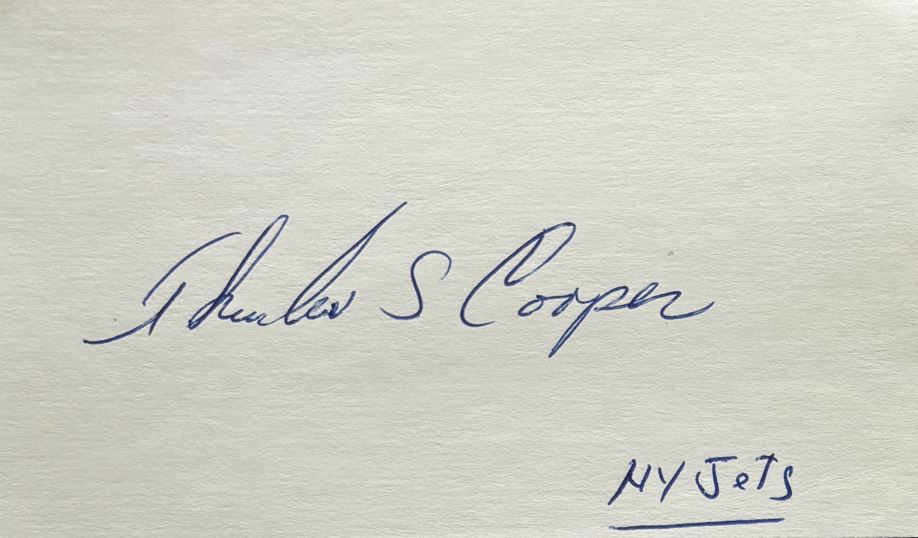 Thurlow S Cooper
NY Jets